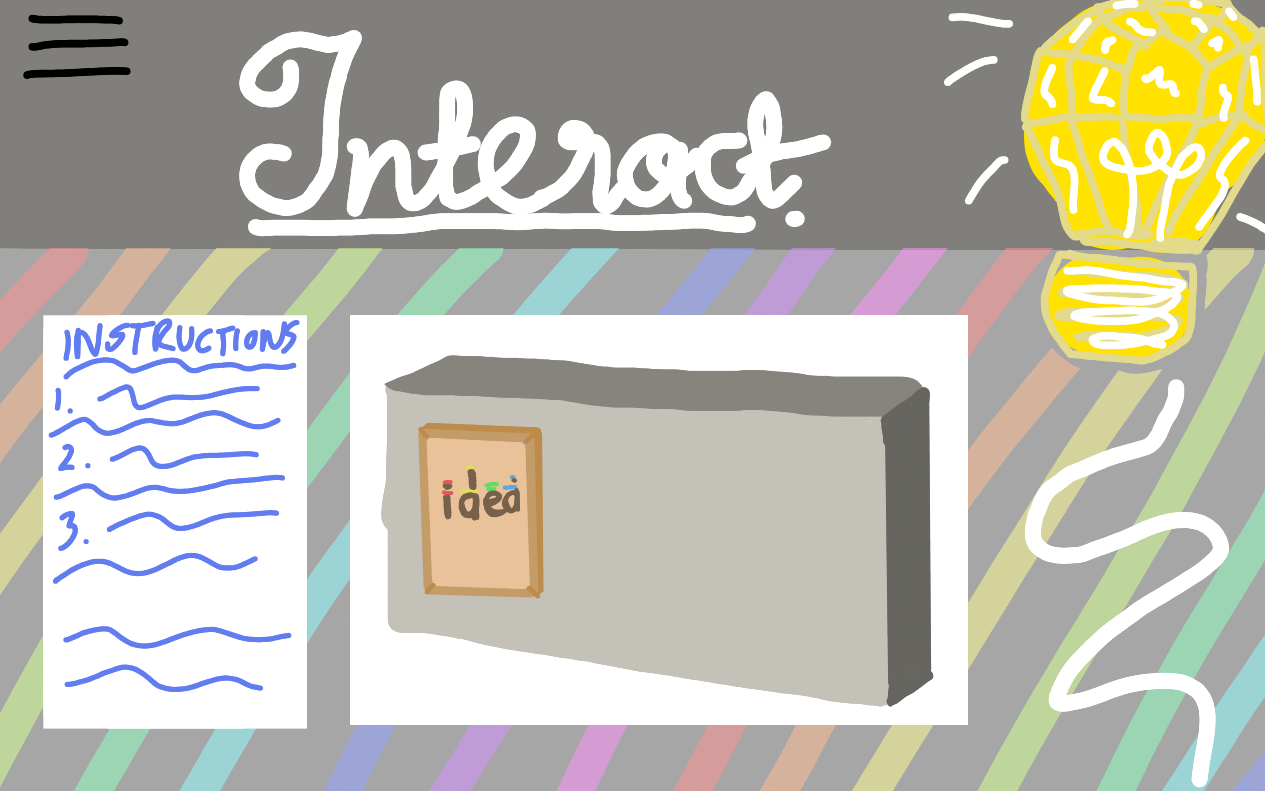 Interact.
INSTRUCTIONS
1.
2.
3.
idea